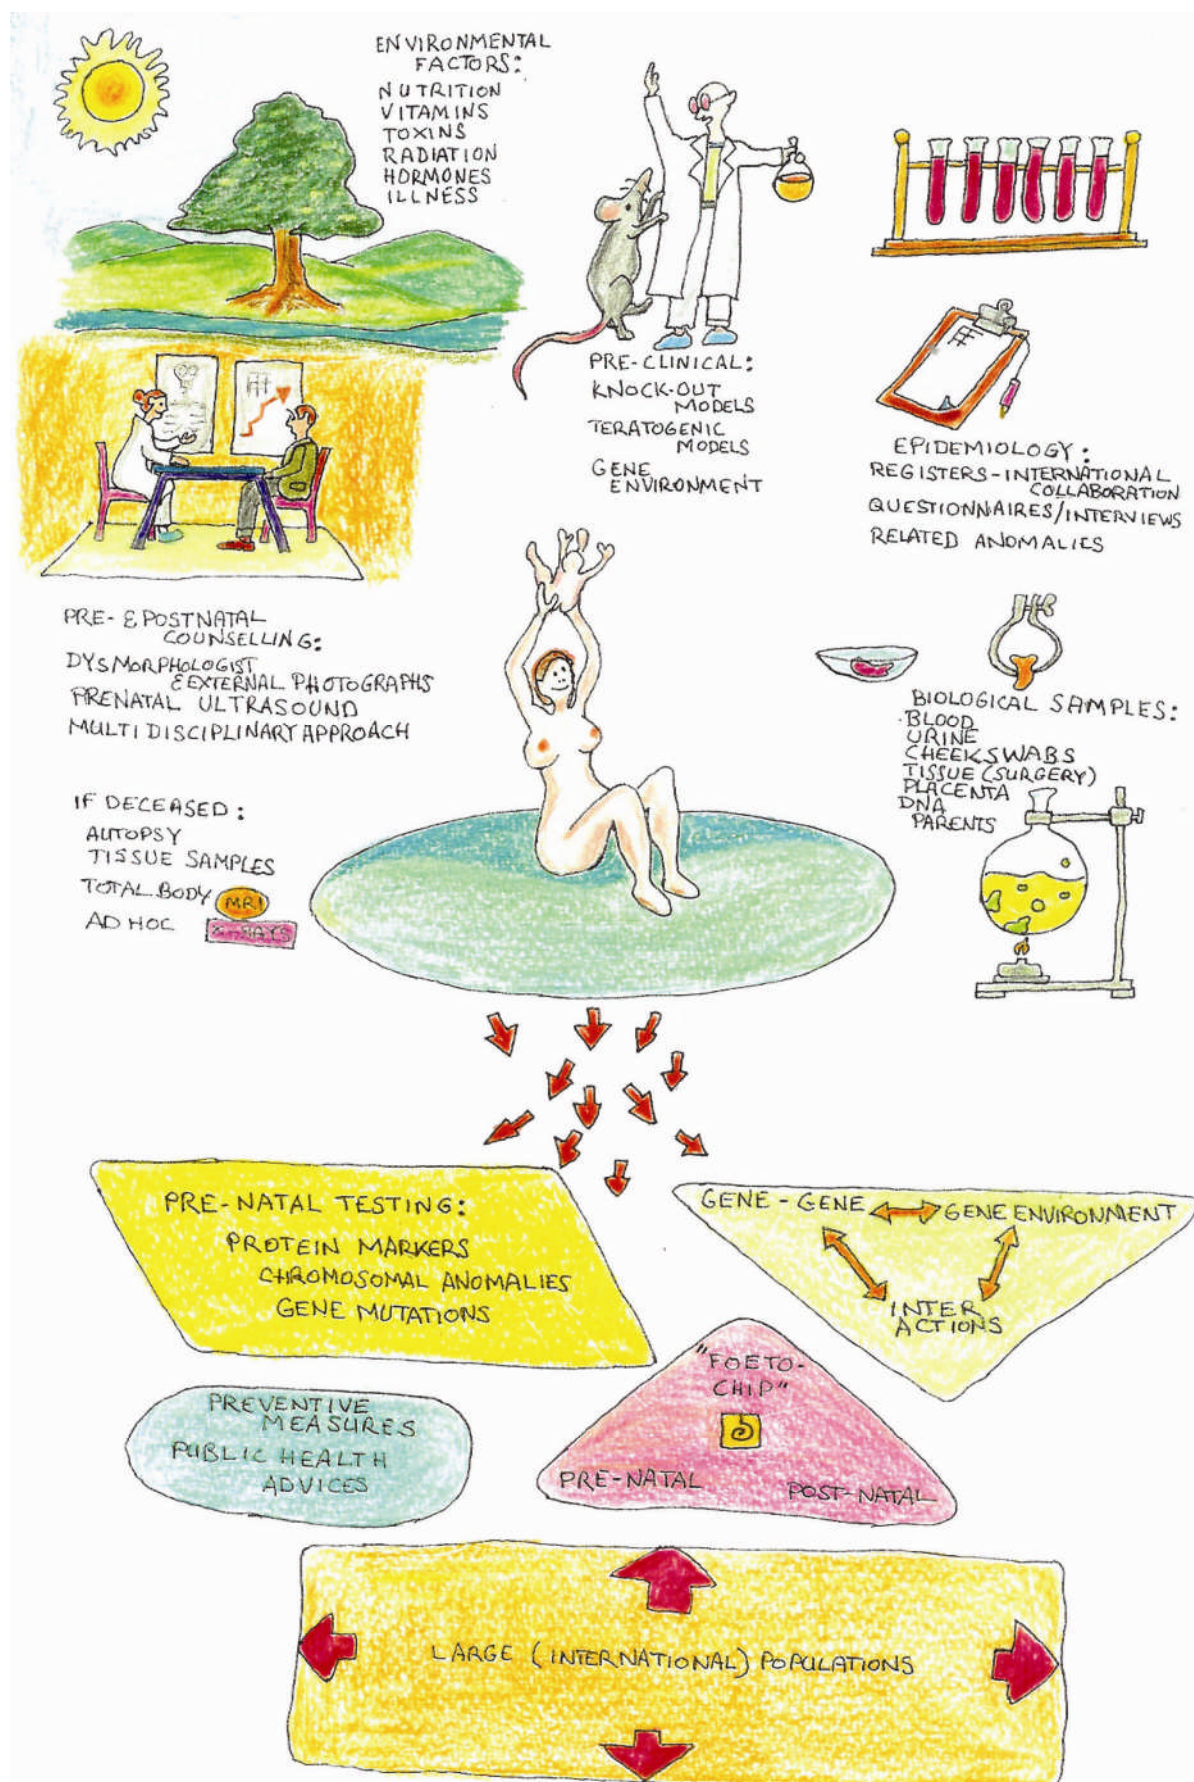 ENVIRONMENTAL
FACTORS:
NUTRITION
VITAMINS
TOXINS
RADIATION
HORMONES
ILLNESS
PRE-CLINICAL:
KNOCK-OUT
MODELS
TERATOGENIC
MODELS
GENE
ENVIRONMENT
EPIDEMIOLOGY:
REGISTERS-INTERNATIONAL
COLLABORATION
QUESTIONNAIRES/INTERVIEWS
RELATED ANOMALIES
PRE- & POSTNATAL
COUNSELLING:
DYSMORPHOLOGIST
& EXTERNAL PHOTOGRAPHS
PRENATAL ULTRASOUND
MULTIDISCIPLINARY APPROACH
IF DECEASED:
AUTOPSY
TISSUE SAMPLES
TOTAL BODY MRI
AD HOC X-RAYS
BIOLOGICAL SAMPLES:
BLOOD
URINE
CHEEKSWABS
TISSUE (SURGERY)
PLACENTA
DNA
PARENTS
PRE-NATAL TESTING:
PROTEIN MARKERS
CHROMOSOMAL ANOMALIES
GENE MUTATIONS
GENE-GENE GENE ENVIRONMENT
INTER
ACTIONS
PREVENTIVE
MEASURES
PUBLIC HEALTH
ADVICES
"FOETO-
CHIP"
PRE-NATAL POST-NATAL
LARGE (INTERNATIONAL) POPULATIONS